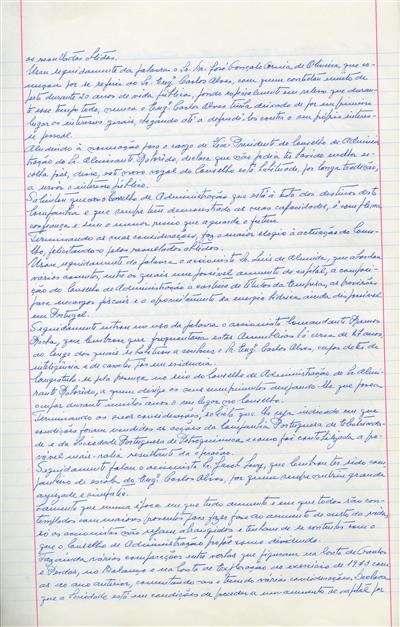 os resultados obtidos.
Usou seguidamente da palavra o Sr. Dr. José Gonçalo Correia de Oliveira, que co-
meçou por se referir ao Sr. Engº Carlos Alves, com quem contactou muito de
perto durante 20 anos de vida pública, pondo especialmente em relevo que duran-
te esse tempo todo, nunca o Engº Carlos Alves tinha deixado de pôr em primeiro
lugar os interesses gerais, chegando até a defendê-los contra o seu próprio interes-
se pessoal.
Aludindo à nomeação para o cargo de Vice-Presidente do Conselho de Adminis-
tração do Sr. Almirante, declara que não podia ter havido melhor es-
colha pois, disse, este novo vogal do Conselho está habituado, por longa tradição,
a servir o interesse público.
Salientou que ao Conselho de Administração que está à testa dos destinos desta
Companhia e que sempre tem demonstrado as suas capacidades, é com plena
confiança e sem o menor receio que aguarda o futuro.
Terminando as suas considerações, fez o maior elogio à actuação do Conse-
lho, felicitando-o pelos resultados obtidos.
Usou seguidamente da palavra o accionista Sr. Luís de Almeida, que abordou
vários assuntos, entre os quais um possível aumento de capital, a composi-
ção do Conselho de Administração a carteira de títulos da Empresa, as provisões
para encargos fiscais e o aproveitamento da energia hídrica ainda disponível
em Portugal.
Seguidamente entrou no uso da palavra o accionista Comandante Ramos
que lembrou que frequentava estas Assembleias há cerca de 27 anos,
ao longo dos quais se habituou a conhecer o Sr. Engº Carlos Alves, cujos dotes de
inteligência e de carácter pôs em evidência.
Congratula-se pela presença no seio do Conselho de Administração do Sr. Almi-
rante, a quem dirige os seus cumprimentos desejando-lhe que possa
ocupar durante muitos anos o seu lugar no Conselho.
Terminando as suas considerações, solicita que lhe seja indicado em que
condições foram vendidas as acções da Companhia Portuguesa de
e da Sociedade Portuguesa de Petroquímica e como foi contabilizada a pos-
sível mais-valia resultante da operação.
Seguidamente falou o accionista Sr. Jacob Levy, que lembrou ter sido com-
panheiro de escola do Engº Carlos Alves, por quem sempre nutriu grande
amizade e simpatia.
Lamenta que numa época em que tudo aumenta e em que todos são con-
templados com maiores proventos para fazer face ao aumento do custo da vida,
só os accionistas não sejam abrangidos e tenham de se contentar com o
que o Conselho de Administração propõe como dividendo.
Faz ainda várias comparações entre verbas que figuram na Conta de Ganhos
e Perdas, no Balanço e na Conta de Exploração do exercício de 1973 com
as do ano anterior, comentando-as e tecendo várias considerações. Declara
que a Sociedade está em condições de proceder a um aumento de capital por